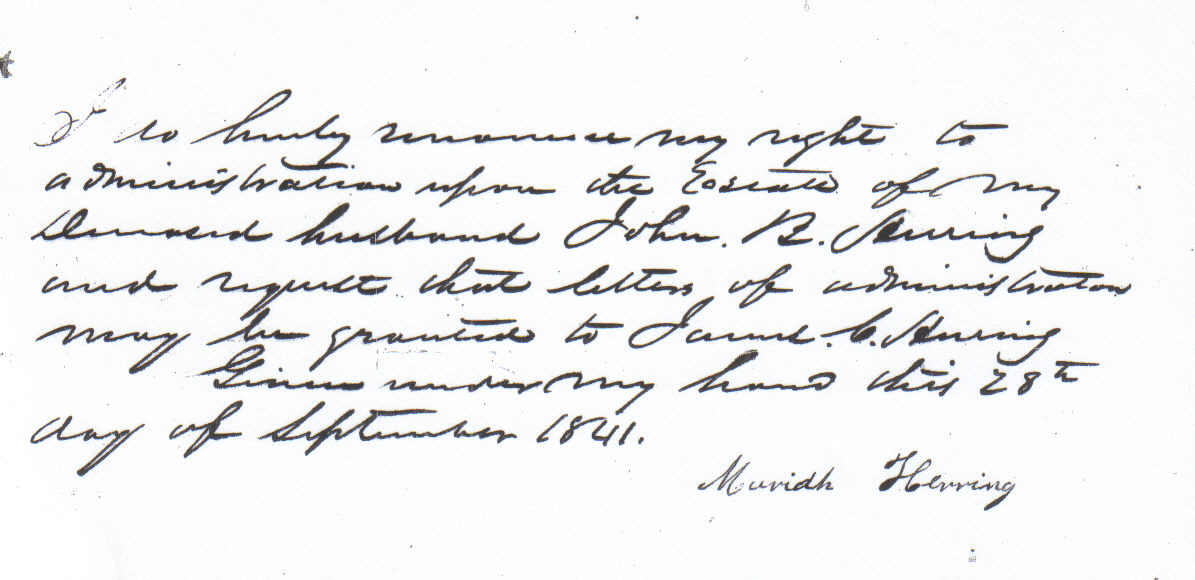 I do hereby renounce my right to
administration upon the Estate of my
Deceased husband John. B. Herring
and request that letters of administration
may be granted to James. C. Herring
Given under my hand this 28th
day of September 1841.
Herring